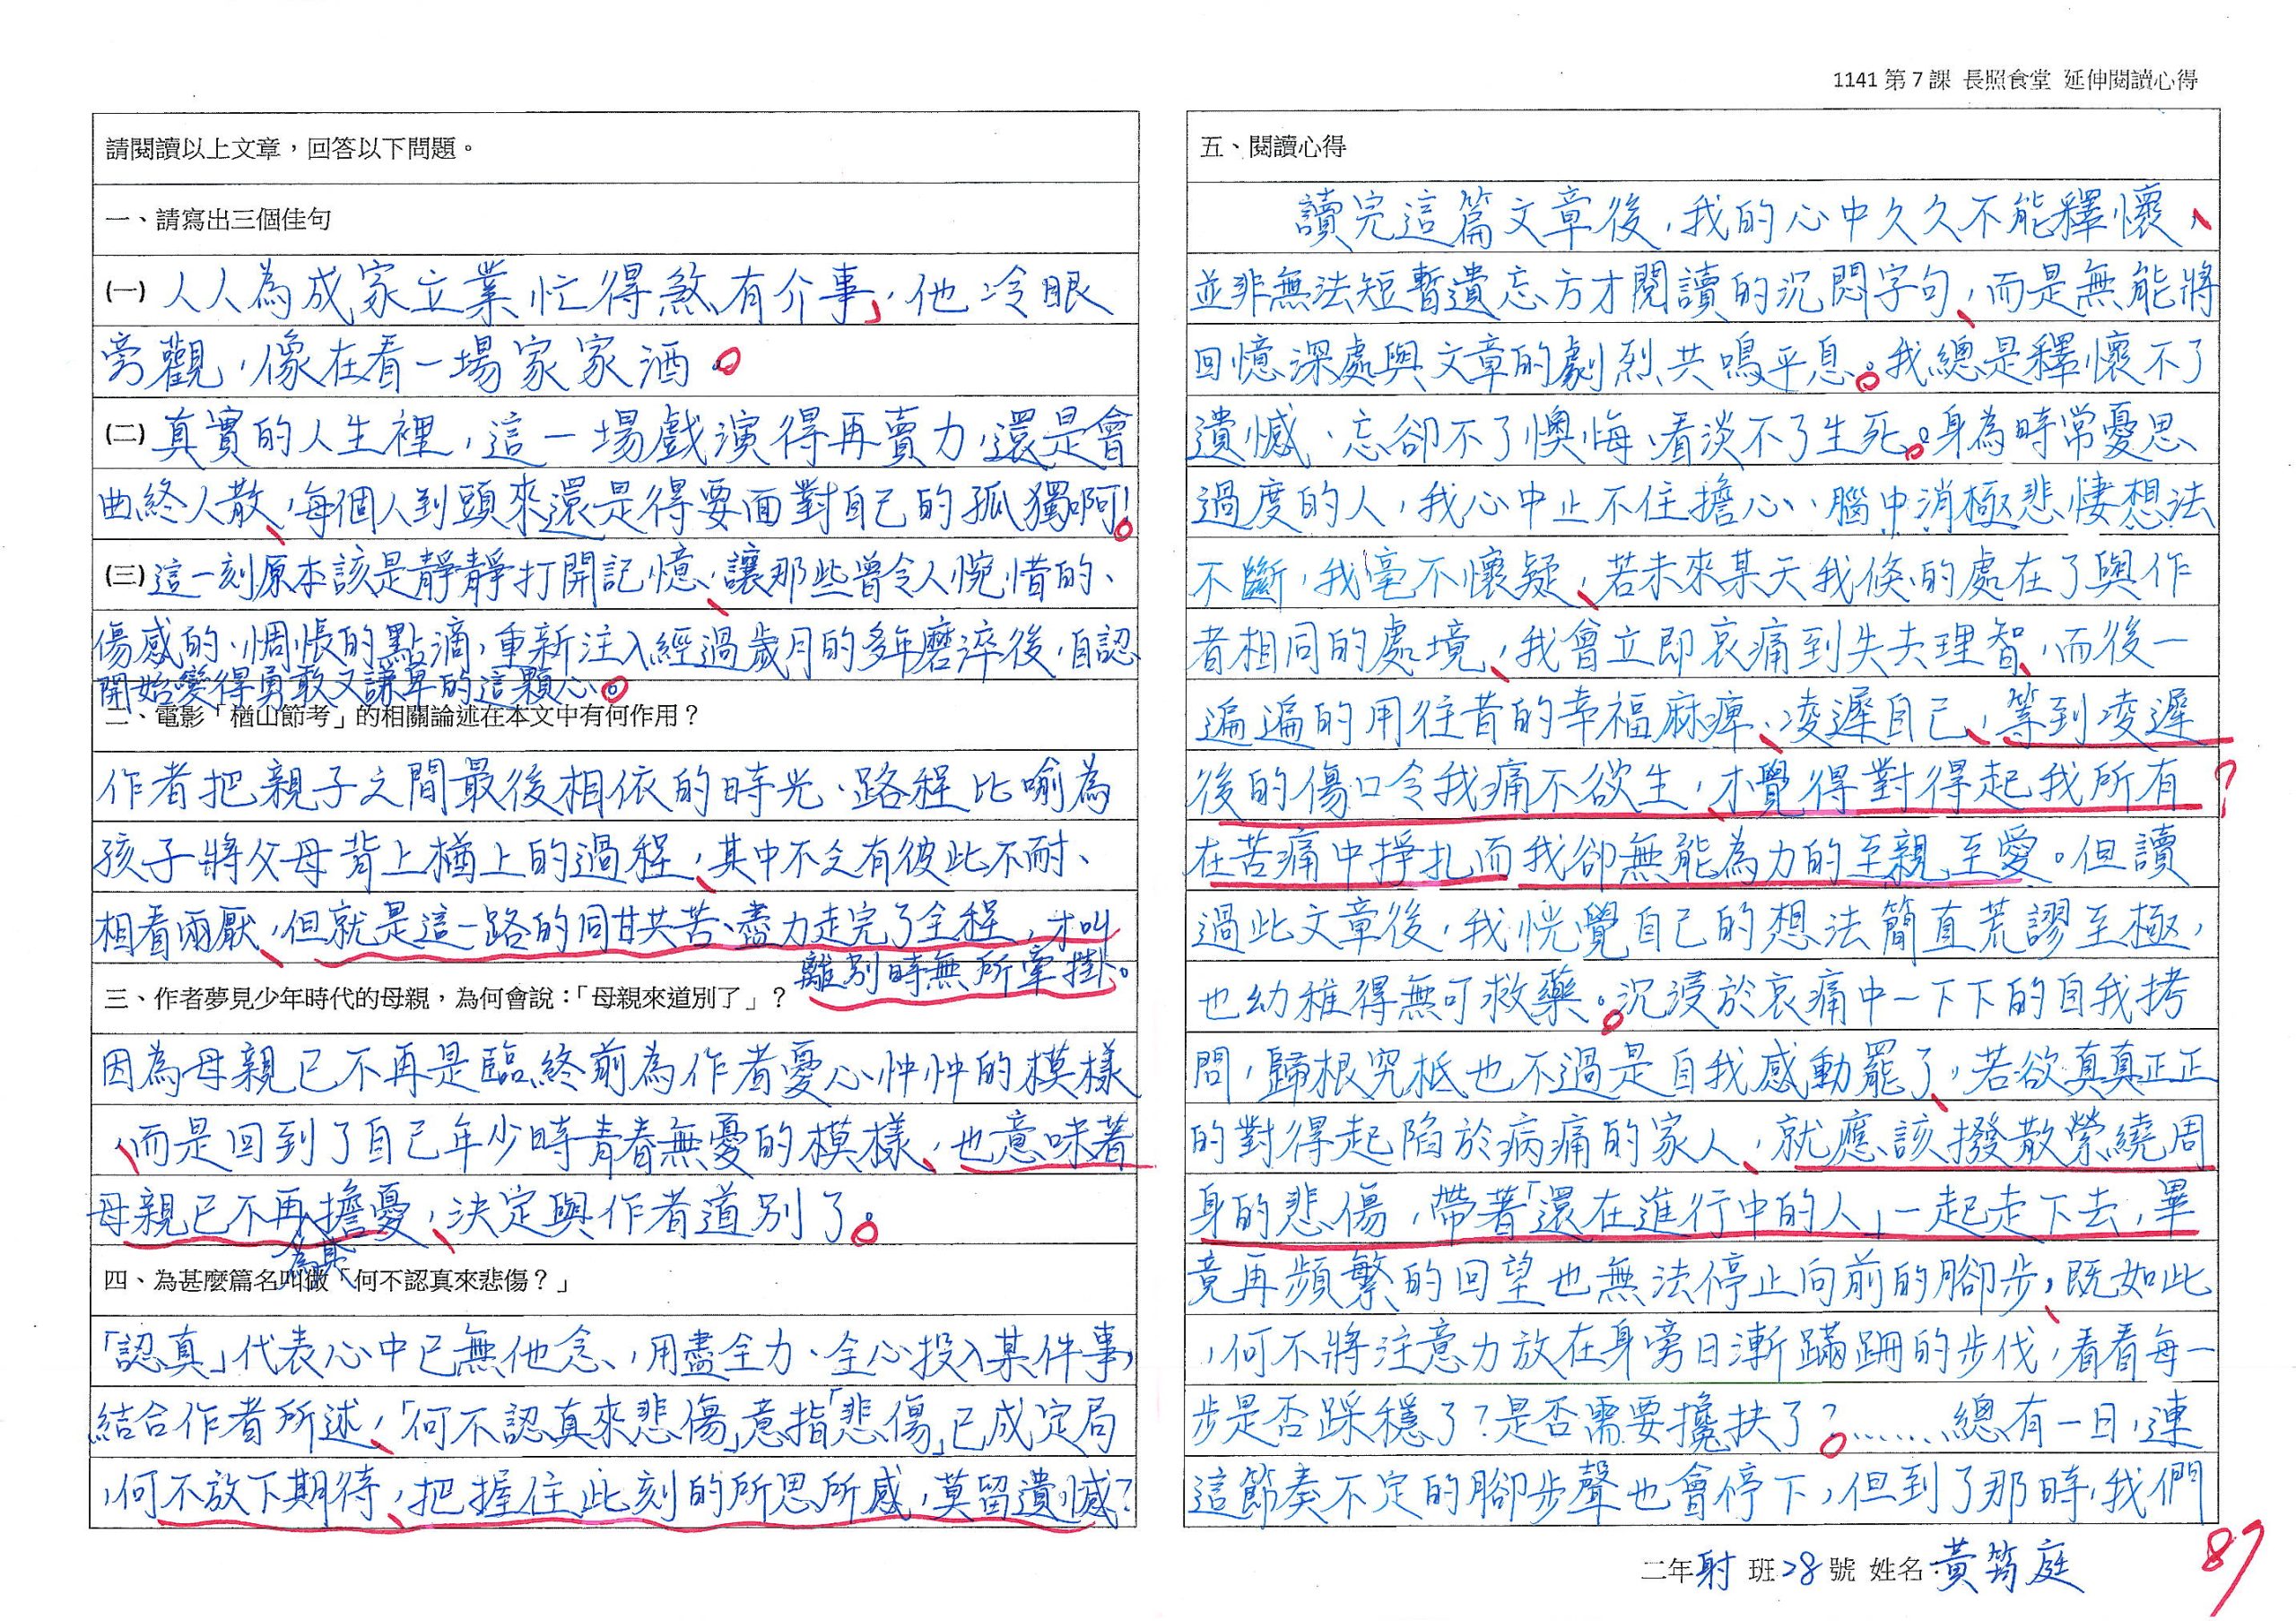 1141 第 7 課 長照食堂 延伸閱讀心得
請閱讀以上文章，回答以下問題。
一、請寫出三個佳句
(一) 人人為成家立業忙得煞有介事，他冷眼
旁觀，像在看一場家家酒。
(二) 真實的人生裡，這一場戲演得再賣力，還是會
曲終人散，每個人到頭來還是得要面對自己的孤獨啊！
(三) 這一刻原本該是靜靜打開記憶，讓那些曾令人惋惜的、
傷感的、惆悵的點滴，重新注入經過歲月的多年磨淬後，自認
開始變得勇敢又謙卑的這顆心。
二、電影「楢山節考」的相關論述在本文中有何作用？
作者把親子之間最後相依的時光、路程比喻為
孩子將父母背上楢上的過程，其中不乏有彼此不耐、
相看兩厭，但就是這一路的同甘共苦、盡力走完了全程，才叫
離別時無所牽掛。
三、作者夢見少年時代的母親，為何會說：「母親來道別了」？
因為母親已不再是臨終前為作者憂心忡忡的模樣
，而是回到了自己年少時青春無憂的模樣，也意味著
母親已不再為其擔憂，決定與作者道別了。
四、為甚麼篇名叫做「何不認真來悲傷？」
「認真」代表心中已無他念，用盡全力、全心投入某件事，
結合作者所述，「何不認真來悲傷」意指「悲傷」已成定局
，何不放下期待，把握住此刻的所思所感，莫留遺憾？
五、閱讀心得
讀完這篇文章後，我的心中久久不能釋懷，
並非無法短暫遺忘方才閱讀的沉悶字句，而是無能將
回憶深處與文章的劇烈共鳴平息。我總是釋懷不了
遺憾、忘卻不了懊悔、看淡不了生死。身為時常憂思
過度的人，我心中止不住擔心、腦中消極悲悽想法
不斷，我毫不懷疑，若未來某天我倏的處在了與作
者相同的處境，我會立即哀痛到失去理智，而後一
遍遍的用往昔的幸福麻痺、凌遲自己，等到凌遲
後的傷口令我痛不欲生，才覺得對得起我所有
在苦痛中掙扎而我卻無能為力的至親至愛。但讀
過此文章後，我恍覺自己的想法簡直荒謬至極，
也幼稚得無可救藥。沉浸於哀痛中一下下的自我拷
問，歸根究柢也不過是自我感動罷了，若欲真真正正
的對得起陷於病痛的家人，就應該撥散縈繞周
身的悲傷，帶著「還在進行中的人」一起走下去，畢
竟再頻繁的回望也無法停止向前的腳步，既如此
，何不將注意力放在身旁日漸蹣跚的步伐，看看每一
步是否踩穩了？是否需要攙扶了？……總有一日，連
這節奏不定的腳步聲也會停下，但到了那時，我們
二年射 班28號 姓名 黃筠庭
87